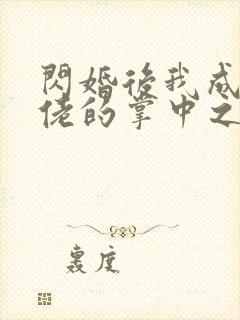 閃婚後我成
佬的掌中之
轰庭